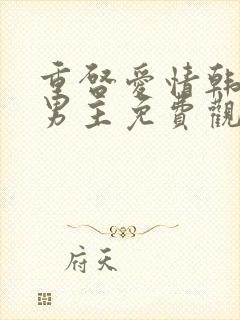 重啓愛情韓
男主免費觀
府天